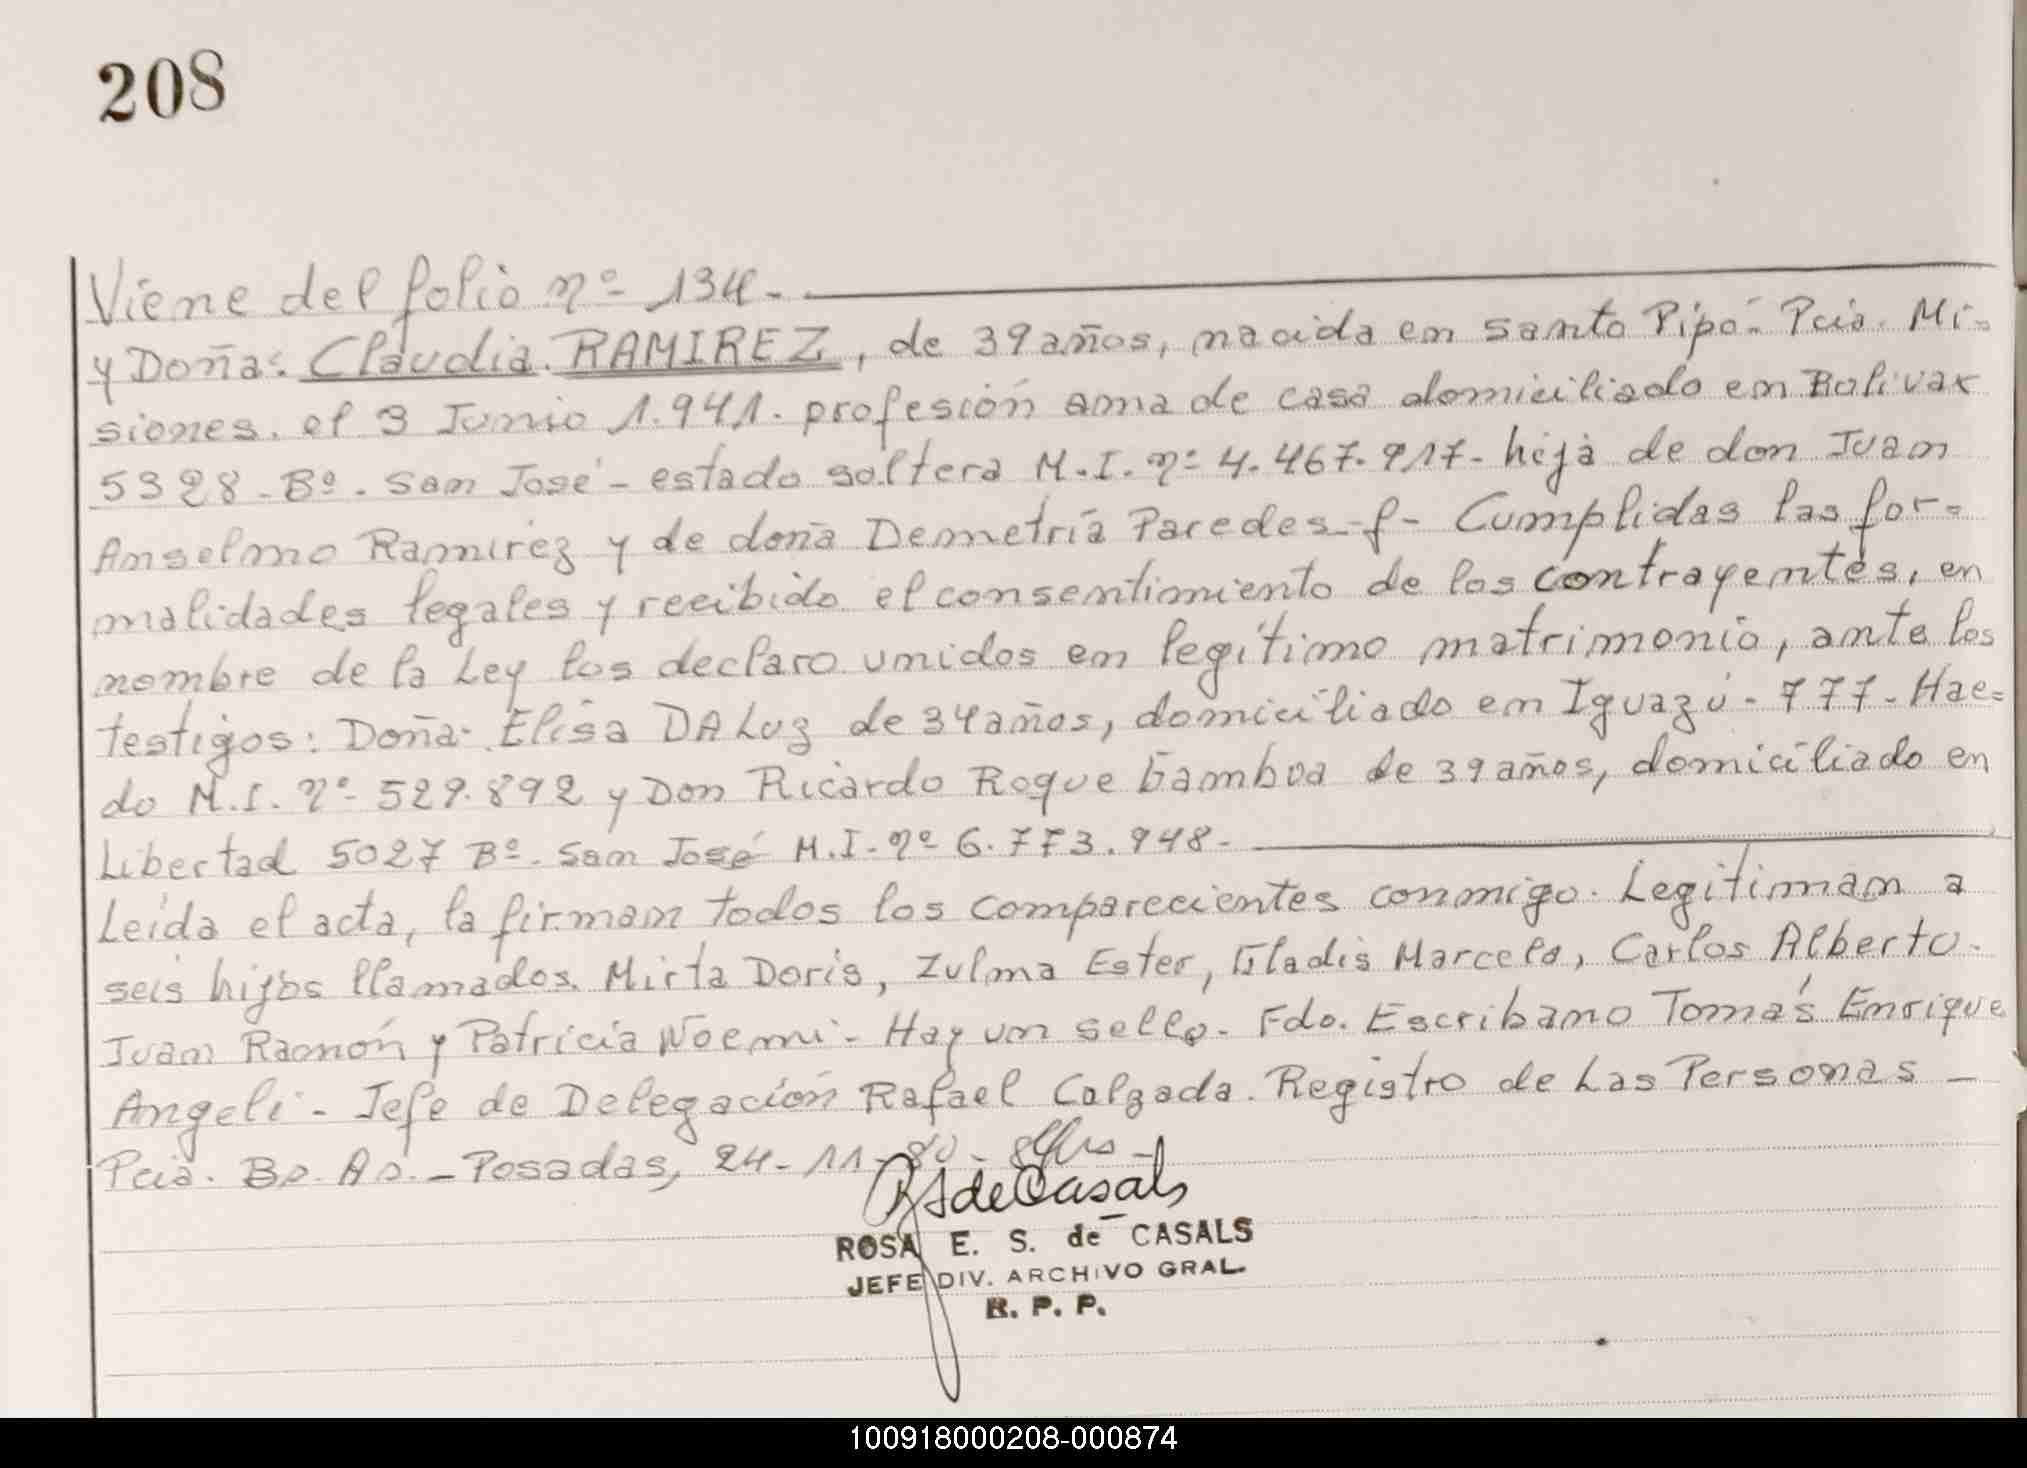 208
Viene del folio nº 134.-
y Doña: Claudia. RAMIREZ, de 39 años, nacida en Santo Pipó- Pcia. Mi-
siones. el 3 Junio 1.941. profesión ama de casa domiciliado en Bolivar
5328 - Bº. San José - estado soltera M.I. nº 4.467.917- hija de don Juan
Anselmo Ramirez y de doña Demetria Paredes-f- Cumplidas las for-
malidades legales y recibido el consentimiento de los contrayentes, en
nombre de la Ley los declaro unidos en legítimo matrimonio, ante los
testigos: Doña. Elisa DA Luz de 34 años, domiciliado en Iguazú - 777- Hae=
do M.I. nº 529.892 y Don Ricardo Roque Gamboa de 39 años, domiciliado en
Libertad 5027 Bº. San José M.I-nº 6.773.948-
Leída el acta, la firman todos los comparecientes conmigo. Legitiman a
seis hijos llamados. Mirta Doris, Zulma Ester, Gladis Marcela, Carlos Alberto-
Juan Ramón y Patricia Noemi- Hay un sello- Fdo. Escribano Tomás Enrique
Angeli - Jefe de Delegación Rafael Calzada. Registro de Las Personas -
Pcia. Bs. As. - Posadas, 24-11-80-
RSdeCasals
ROSA E. S. de CASALS
JEFE DIV. ARCHIVO GRAL.
R. P. P.
100918000208-000874